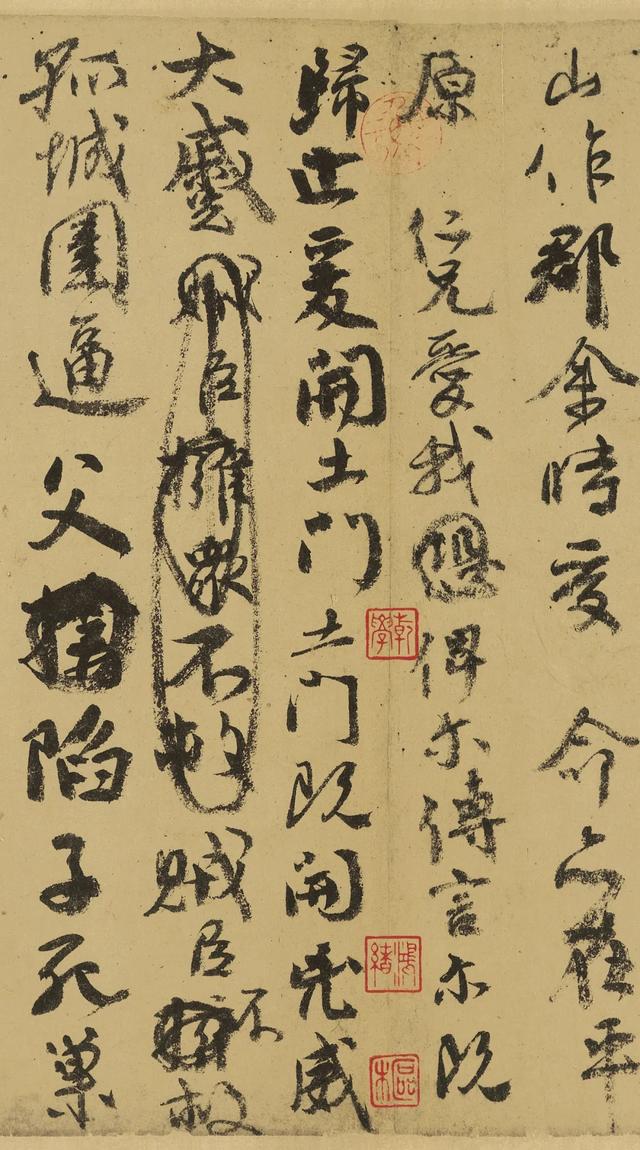 山作郡余時受命亦在平
原仁兄愛我俾尔傳言尔既
歸止爰開土門土門既開凶威
大蹙賊臣擁眾不救賊臣不救
孤城圍逼父陷子死巢